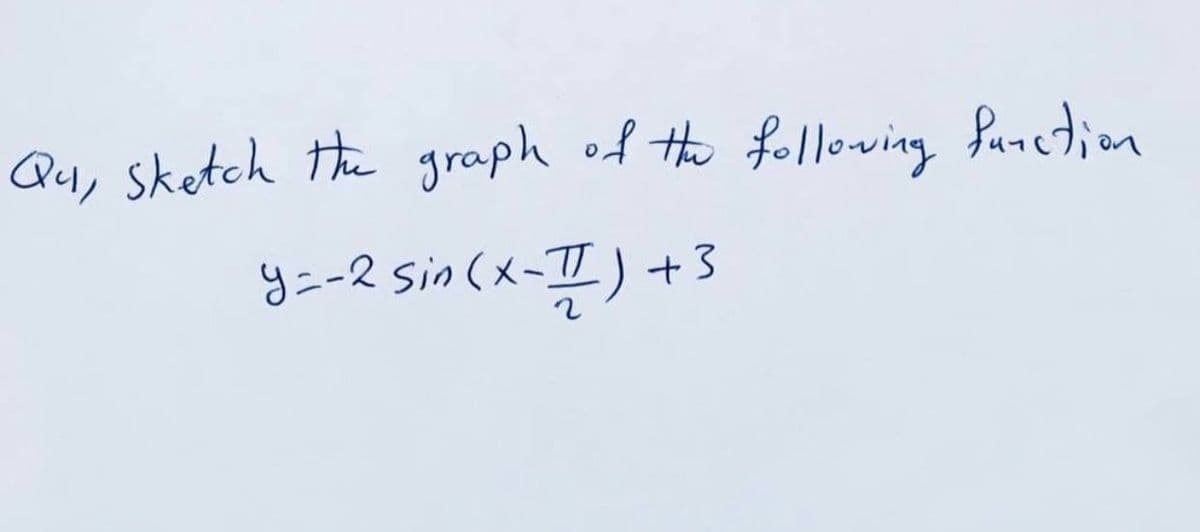 Q4, Sketch the graph of the following function
y=-2 sin(x-π/2)+3